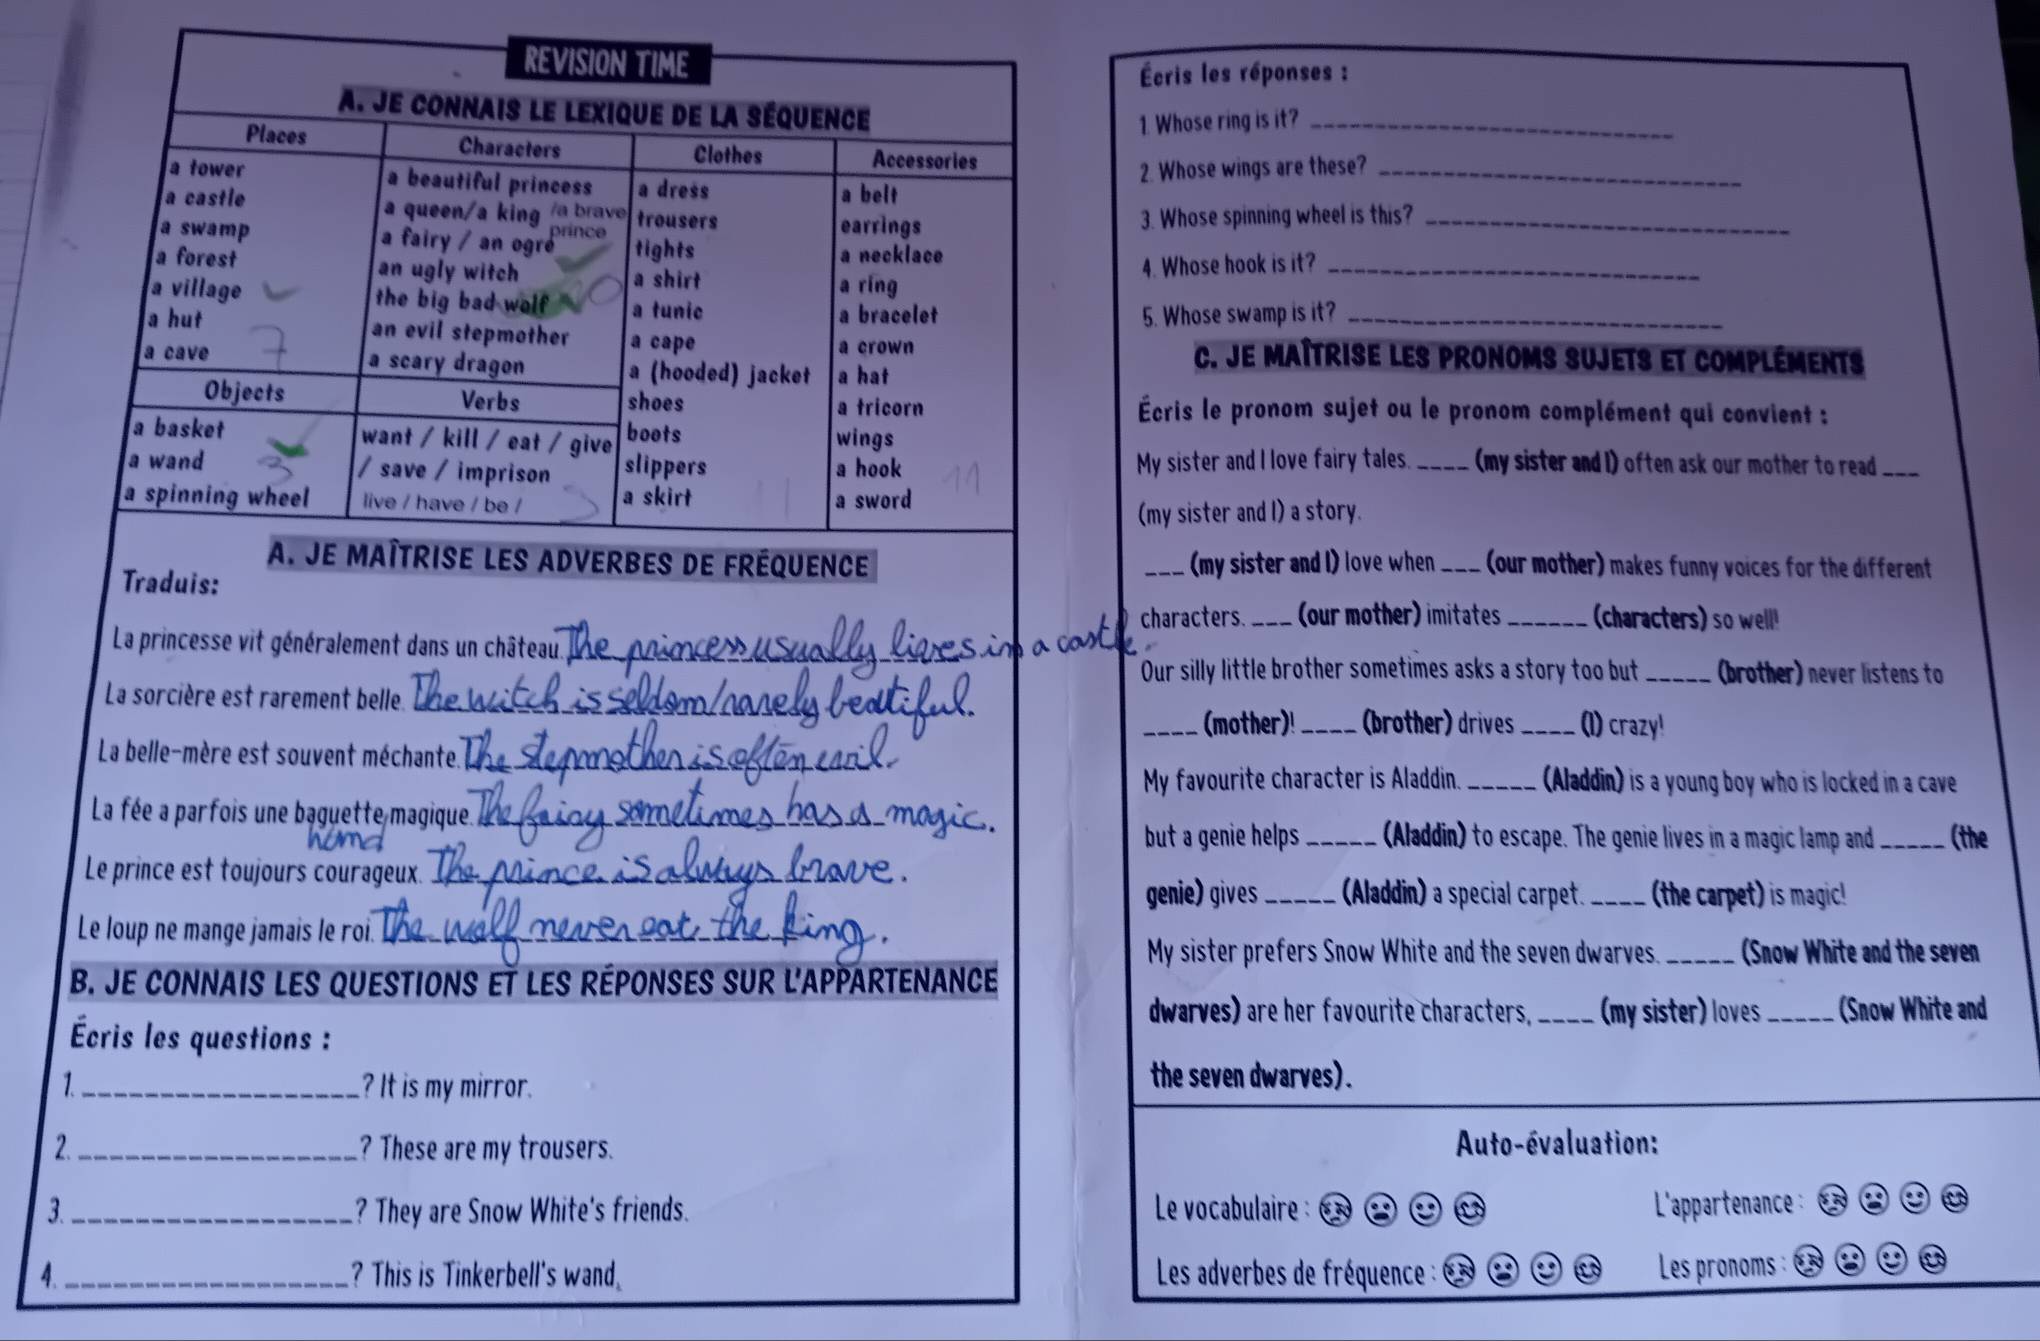 REVISION TIME
A. JE CONNAIS LE LEXIQUE DE LA SÉQUENCE
Places
a tower
a castle
a swamp
a forest
a village
a hut
a cave
7
Characters
a beautiful princess
a queen/a king /a brave prince
a fairy / an ogre
an ugly witch
the big bad wolf
an evil stepmother
a scary dragon
Clothes
a dress
trousers
tights
a shirt
a tunic
a cape
a (hooded) jacket
shoes
boots
slippers
a skirt
11
Accessories
a belt
earrings
a necklace
a ring
a bracelet
a crown
a hat
a tricorn
wings
a hook
a sword
11
Objects
a basket
a wand
a spinning wheel
3
Verbs
want / kill / eat / give
/ save / imprison
live / have / be /
A. JE MAÎTRISE LES ADVERBES DE FRÉQUENCE
Traduis:
La princesse vit généralement dans un château. The princess usually lives in a castle.
La sorcière est rarement belle. The witch is seldom/rarely beatiful.
La belle-mère est souvent méchante. The stepmother is often evil.
La fée a parfois une baguette magique. The fairy sometimes has a magic.
Le prince est toujours courageux. The prince is always brave.
Le loup ne mange jamais le roi. The wolf never eat the king.
B. JE CONNAIS LES QUESTIONS ET LES RÉPONSES SUR L'APPARTENANCE
Écris les questions :
1. ____________________? It is my mirror.
2. ____________________? These are my trousers.
3. ____________________? They are Snow White's friends.
4. ____________________? This is Tinkerbell's wand.
Écris les réponses :
1. Whose ring is it? ____________________
2. Whose wings are these? ____________________
3. Whose spinning wheel is this? ____________________
4. Whose hook is it? ____________________
5. Whose swamp is it? ____________________
C. JE MAÎTRISE LES PRONOMS SUJETS ET COMPLÉMENTS
Écris le pronom sujet ou le pronom complément qui convient :
My sister and I love fairy tales. ____ (my sister and I) often ask our mother to read ___
(my sister and I) a story.
___ (my sister and I) love when ___ (our mother) makes funny voices for the different
characters. ___ (our mother) imitates ______ (characters) so well!
Our silly little brother sometimes asks a story too but _____ (brother) never listens to
____ (mother)! ____ (brother) drives ____ (I) crazy!
My favourite character is Aladdin. _____ (Aladdin) is a young boy who is locked in a cave
but a genie helps _____ (Aladdin) to escape. The genie lives in a magic lamp and _____ (the
genie) gives _____ (Aladdin) a special carpet. ____ (the carpet) is magic!
My sister prefers Snow White and the seven dwarves. _____ (Snow White and the seven
dwarves) are her favourite characters, ____ (my sister) loves _____ (Snow White and
the seven dwarves).
Auto-évaluation:
Le vocabulaire :
L'appartenance :
Les adverbes de fréquence :
Les pronoms :